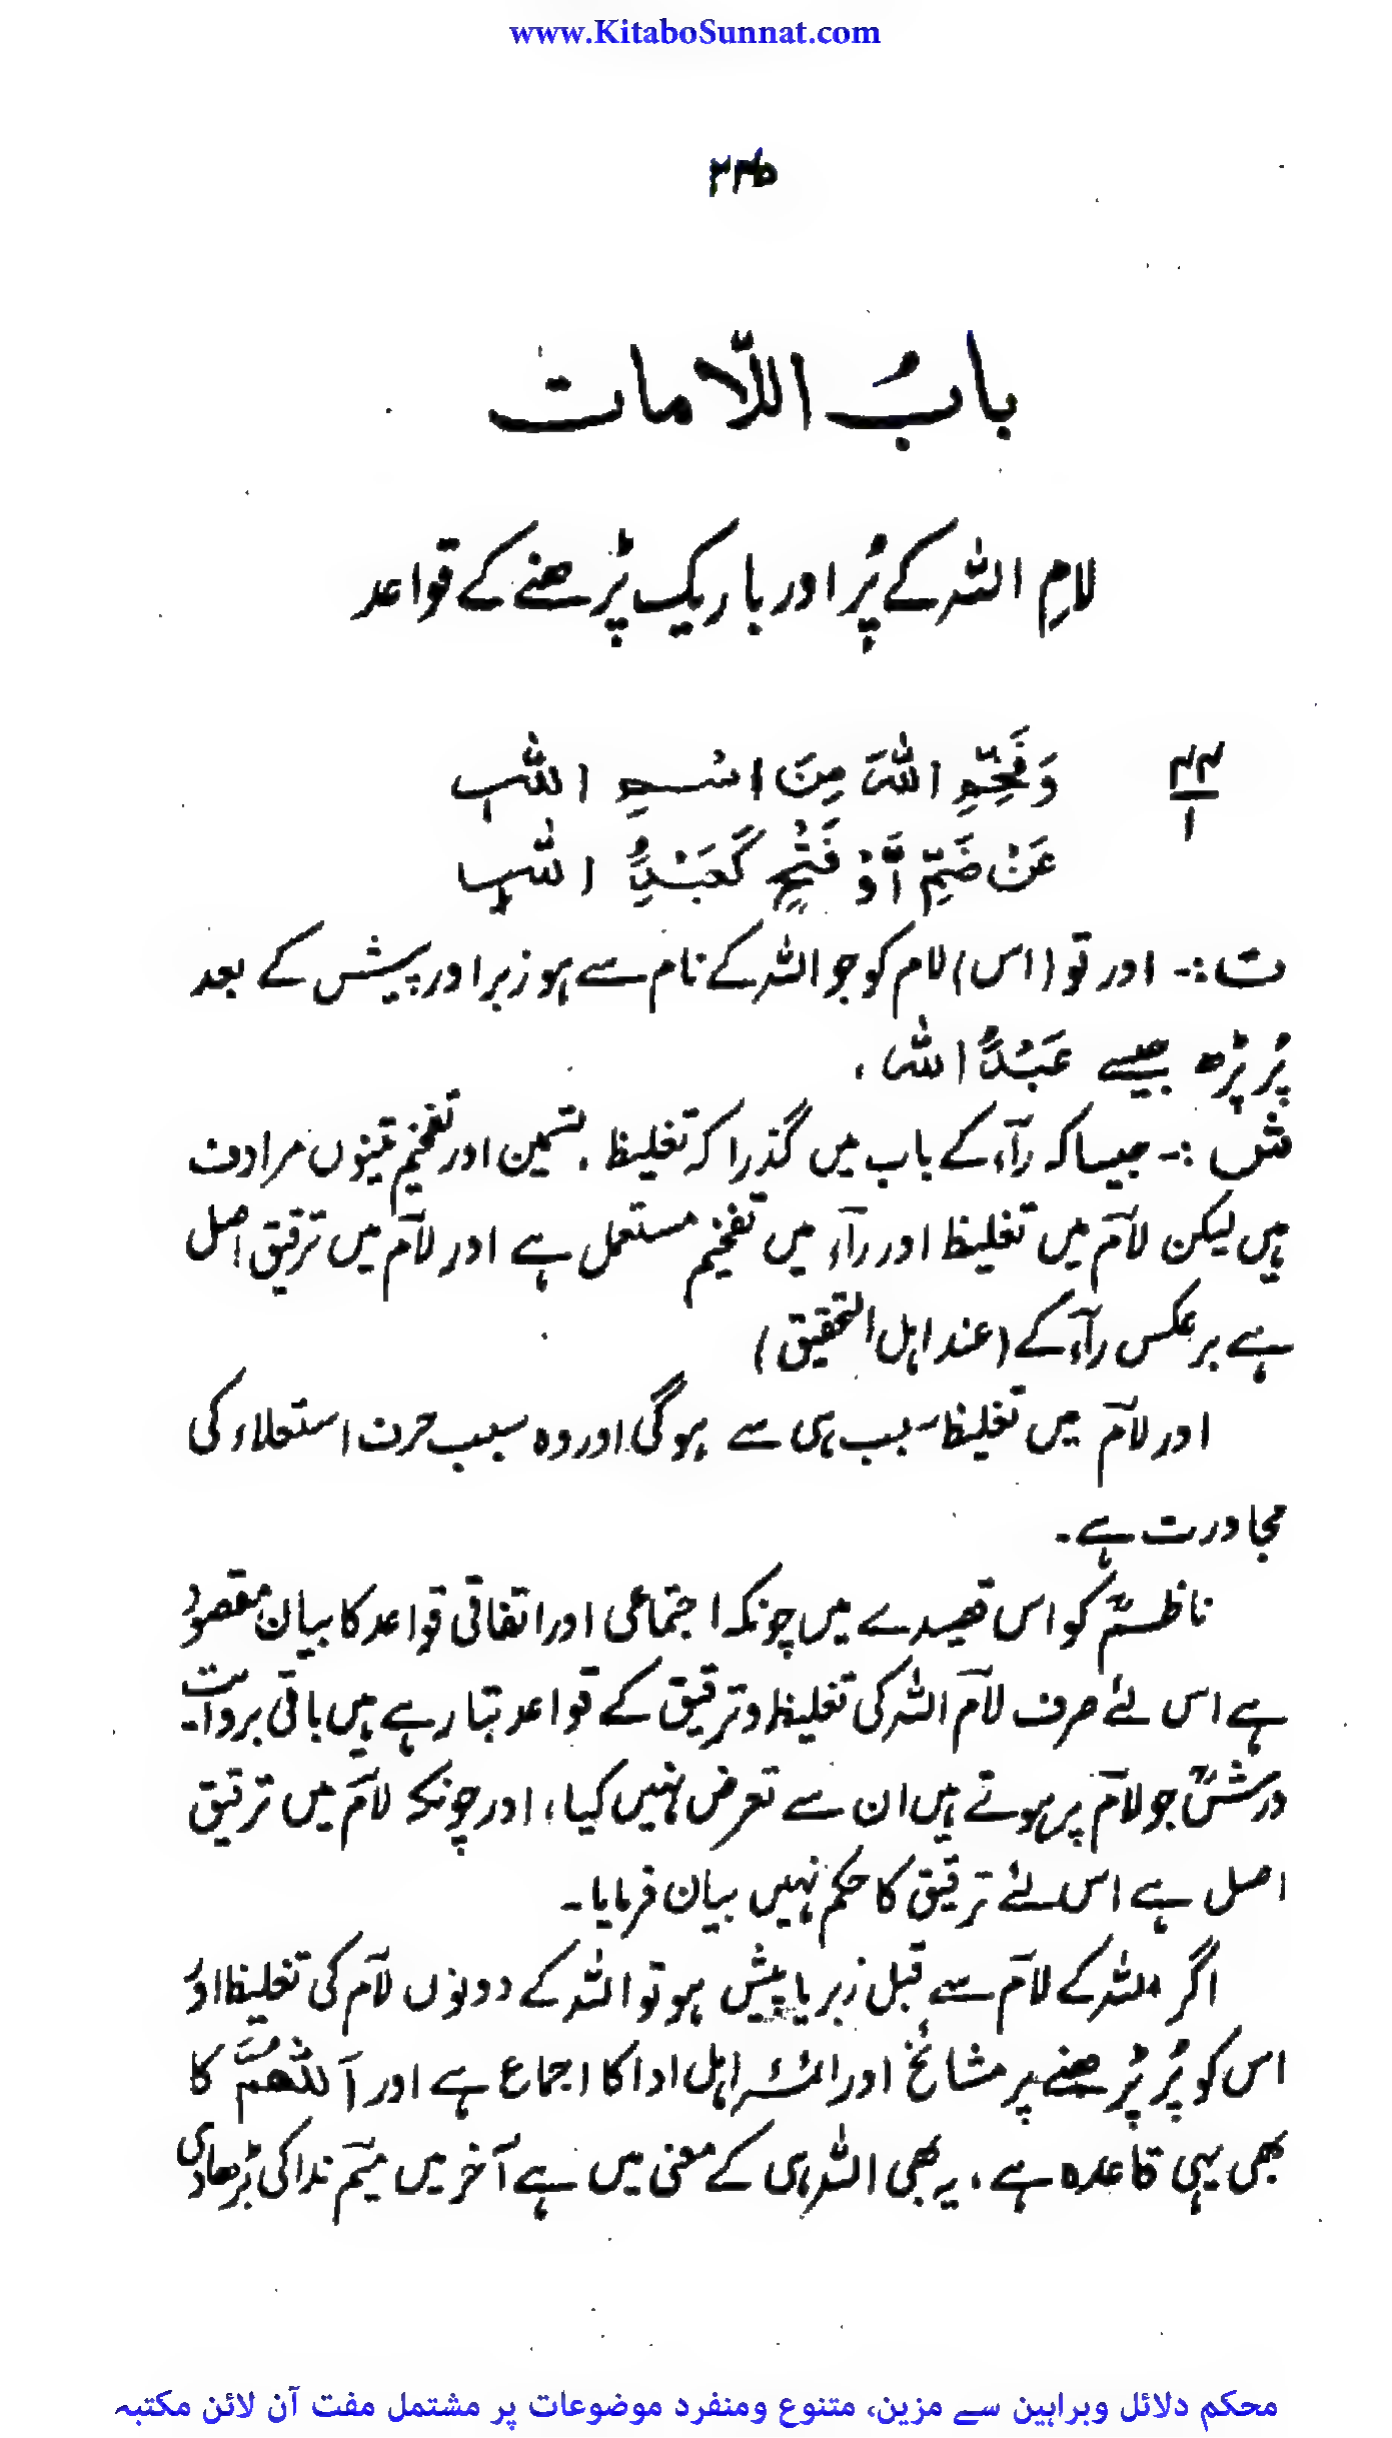 www.KitaboSunnat.com
۲۳۵
بابُ اللّامات
لامِ اللہ کے پُر اور باریک پڑھنے کے قواعد
۴۴
۱
وَفَخِّمِ اللَّامَ مِنَ اسْمِ اللّٰهِ
عَنْ ضَمِّ اَوْ فَتْحٍ كَعَبْدُ اللّٰهِ
ت :۔ اور تو (اس) لام کو جو اللہ کے نام سے ہو زبر اور پیش کے بعد
پُر پڑھ جیسے عَبْدُ اللّٰه ،
ش :۔ جیسا کہ رآء کے باب میں گذرا کہ تغلیظ ، تسمین اور تفخیم تینوں مرادف
ہیں لیکن لآم میں تغلیظ اور رآء میں تفخیم مستعمل ہے اور لآم میں ترقیق اصل
ہے برعکس رآء کے (عند اہل التحقیق)
اور لآم میں تغلیظ سبب ہی سے ہوگی اور وہ سبب حرف استعلاء کی
مجاورت ہے۔
ناظمؒ کو اس قصیدے میں چونکہ اجتماعی اور اتفاقی قواعد کا بیان مقصود
ہے اس لئے صرف لآم اللہ کی تغلیظ و ترقیق کے قواعد بتا رہے ہیں باقی بروایت
ورشؒ جو لآم پر ہوتے ہیں ان سے تعرض نہیں کیا، اور چونکہ لآم میں ترقیق
اصل ہے اس لئے ترقیق کا حکم نہیں بیان فرمایا۔
اگر اللہ کے لآم سے قبل زبر یا پیش ہو تو اللہ کے دونوں لآم کی تغلیظ اور
اس کو پُر پڑھنے پر مشائخ اور ائمہ اہل ادا کا اجماع ہے اور اَللّٰهُمَّ کا
بھی یہی قاعدہ ہے، یہ بھی اللہ ہی کے معنی میں ہے آخر میں میم ندا کی بڑھادی
محکم دلائل وبراہین سے مزین، متنوع ومنفرد موضوعات پر مشتمل مفت آن لائن مکتبہ